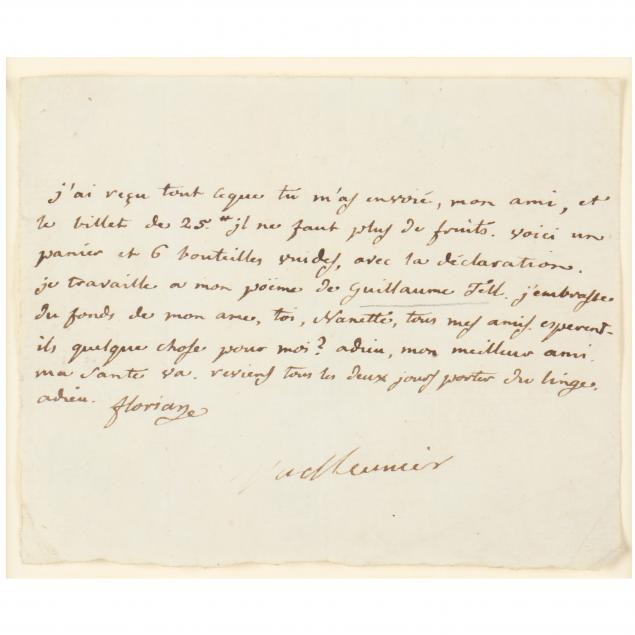 j'ai reçu tout ceque tu m'as envoié, mon ami, et
le billet de 25.tt jl ne faut plus de fruits. voici un
panier et 6 bouteilles vuides, avec la déclaration.
je travaille a mon poëme de Guillaume Tell. j'embrasse
du fonds de mon ame, toi, Nanette, tous mes amis. esperent-
ils quelque chose pour moi? adieu, mon meilleur ami.
ma santé va. reviens tous les deux jours porter du linge.
adieu. florian